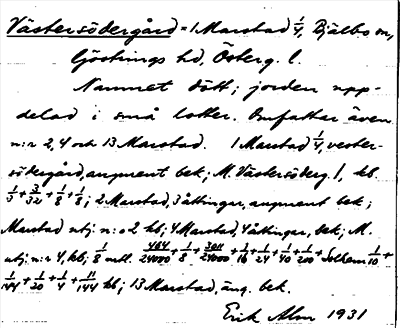 Västersödergård = 1 Marstad 1/4, Bjälbo sn,
Göstrings hd, Österg. l.
Namnet dött; jorden upp-
delad i små lotter. Omfattar även
n:r 2, 4 och 13 Marstad. 1 Marstad 1/4, vester-
södergård, augment bek; M. Västersöderg. 1, kb.
1/3 + 3/32 + 1/8 + 1/8; 2 Marstad, 3 åttingar, augment bek;
Marstad utj: n:o 2 kb; 4 Marstad, 4 åttingar, bek; M.
utj: n:r 4, kb; 1/8 mtl. 464/24000 + 1/8 + 3011/24000 + 1/16 + 1/24 + 1/40 + 1/200 + Solhem 1/10 +
1/144 + 1/20 + 1/4 + 11/144 kb; 13 Marstad, äng. bek.
Erik Alm 1931